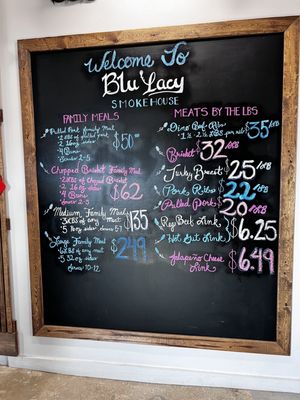 Welcome To
Blu Lacy
SMOKEHOUSE
FAMILY MEALS
Pulled Pork Family Meal
$50
2 lbs of Pulled Pork
2 16oz sides
4 Buns
Serves 2-5
Chopped Brisket Family Meal
2 lbs of Chopped Brisket
2 16 oz sides
4 Buns
Serves 2-5
$62
Medium Family Meal
3 lbs of any meat
3 16oz sides
Serves 5-7
$135
Large Family Meal
6 lbs of any meat
3 32oz sides
Serves 10-12
$249
MEATS BY THE LBS
Dino Beef Ribs
$35/LB
Brisket $32/LB
Turkey Breast $25/LB
Pork Ribs $22/LB
Pulled Pork $20/LB
Beef Link
Hot Gut Link
$6.25
Jalapeño Cheese
Link
$6.49